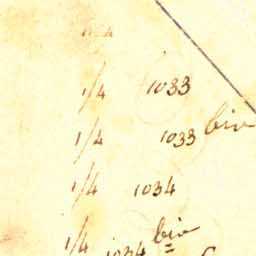 1/4 1033
1/4 1033 bis
1/4 1034
1/4 1034 bis